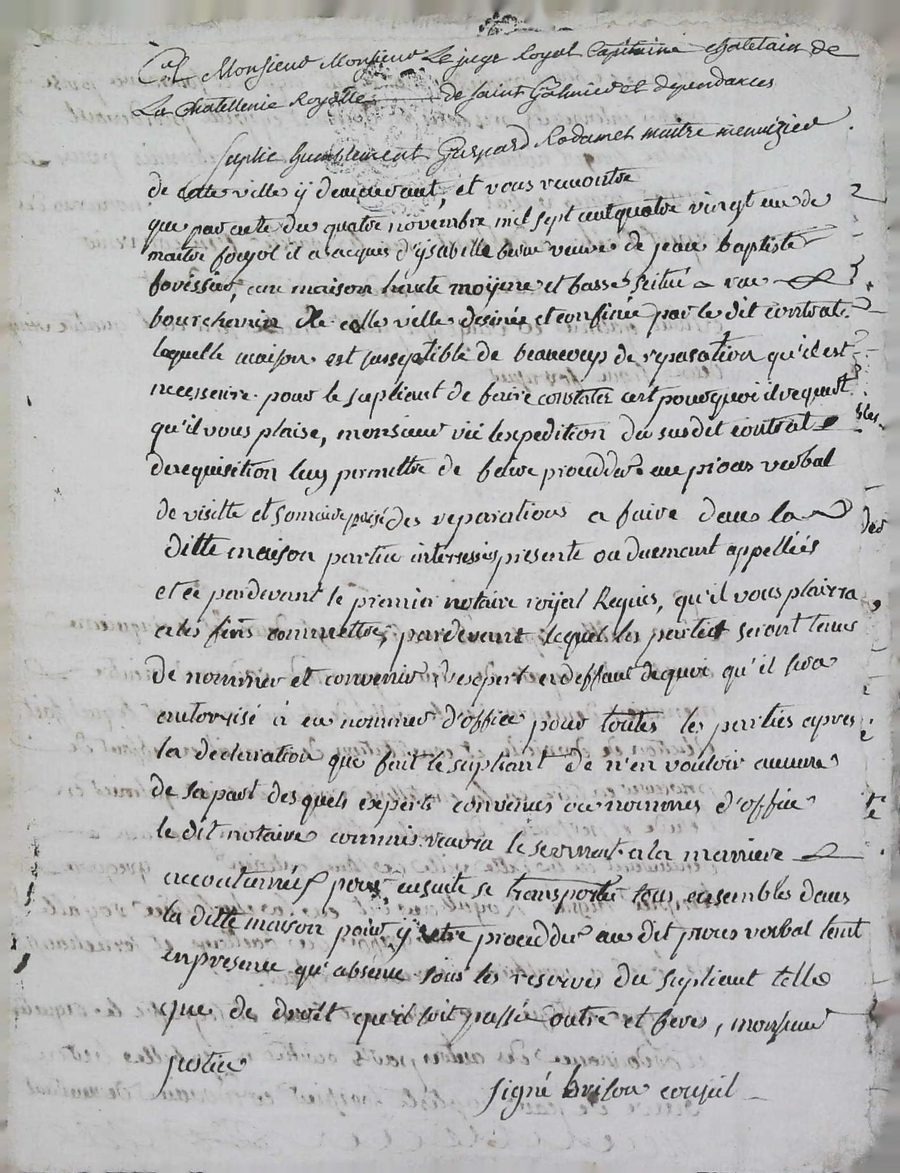 Monsieur Monsieur Le juge Royal Capitaine chatelain de
La Chatellenie Royalle de Saint Galmier et dependances
Suplie humblement Gaspard Rodamet maitre menuizier
de cette ville ÿ demeurant, et vous remontre
que par acte du quatre novembre mil sept cent quatre vingt un de
maitre il a acquis d'ysabelle veuve de jean baptiste
une maison haute moÿene et basse situé rue
bourchanin de cette ville desinée et confinée par le dit contrat
laquelle maison est susceptible de beaucoup de reparation qu'il est
necesserire pour le supliant de faire constater c'est pourquoi il requiert
qu'il vous plaise, monsieur vü l'expedition du susdit contrat
de requisition luy permettre de faire proceder au proces verbal
de visitte et somaire des reparations a faire dans la
ditte maison partie interressés presente ou duemant appellées
et ce pardevant le premier notaire roÿal Requis, qu'il vous plairra
a les fins commettre, pardevant lequel les parties seront tenus
de nommer et convenir d'expert en deffaut de quoi qu'il sera
autorisé à en nommer d'office pour toutes les parties apres
la declaration que fait le supliant de n'en vouloir aucune
de sa part des quels experts convenus ou nommés d'office
le dit notaire commis recevra le serment a la maniere
accoutumée pour ensuite se transporter tous ensembles dans
la ditte maison pour ÿ etre procedder au dit proces verbal tant
en presence qu'absence sous les reserves du supliant telle
que de droit qu'il soit passé outre et feres, monsieur
justice
signé brison conseil